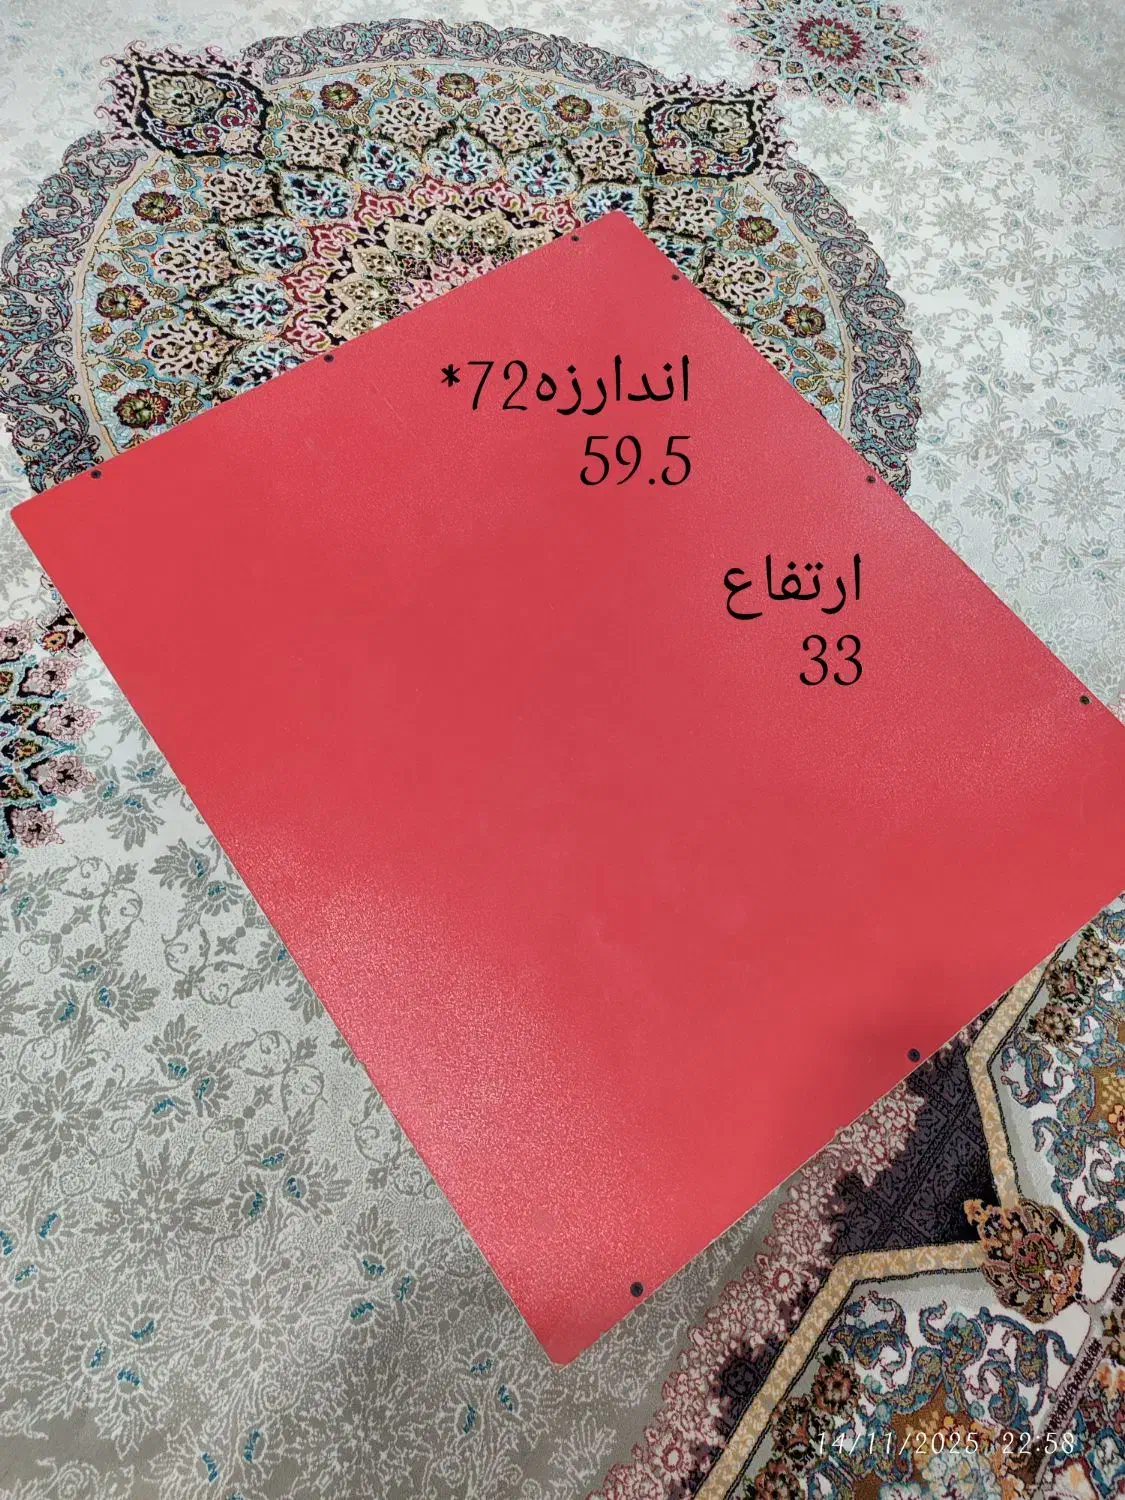 اندارزه72*
59.5
ارتفاع
33
14/11/2025 22:58